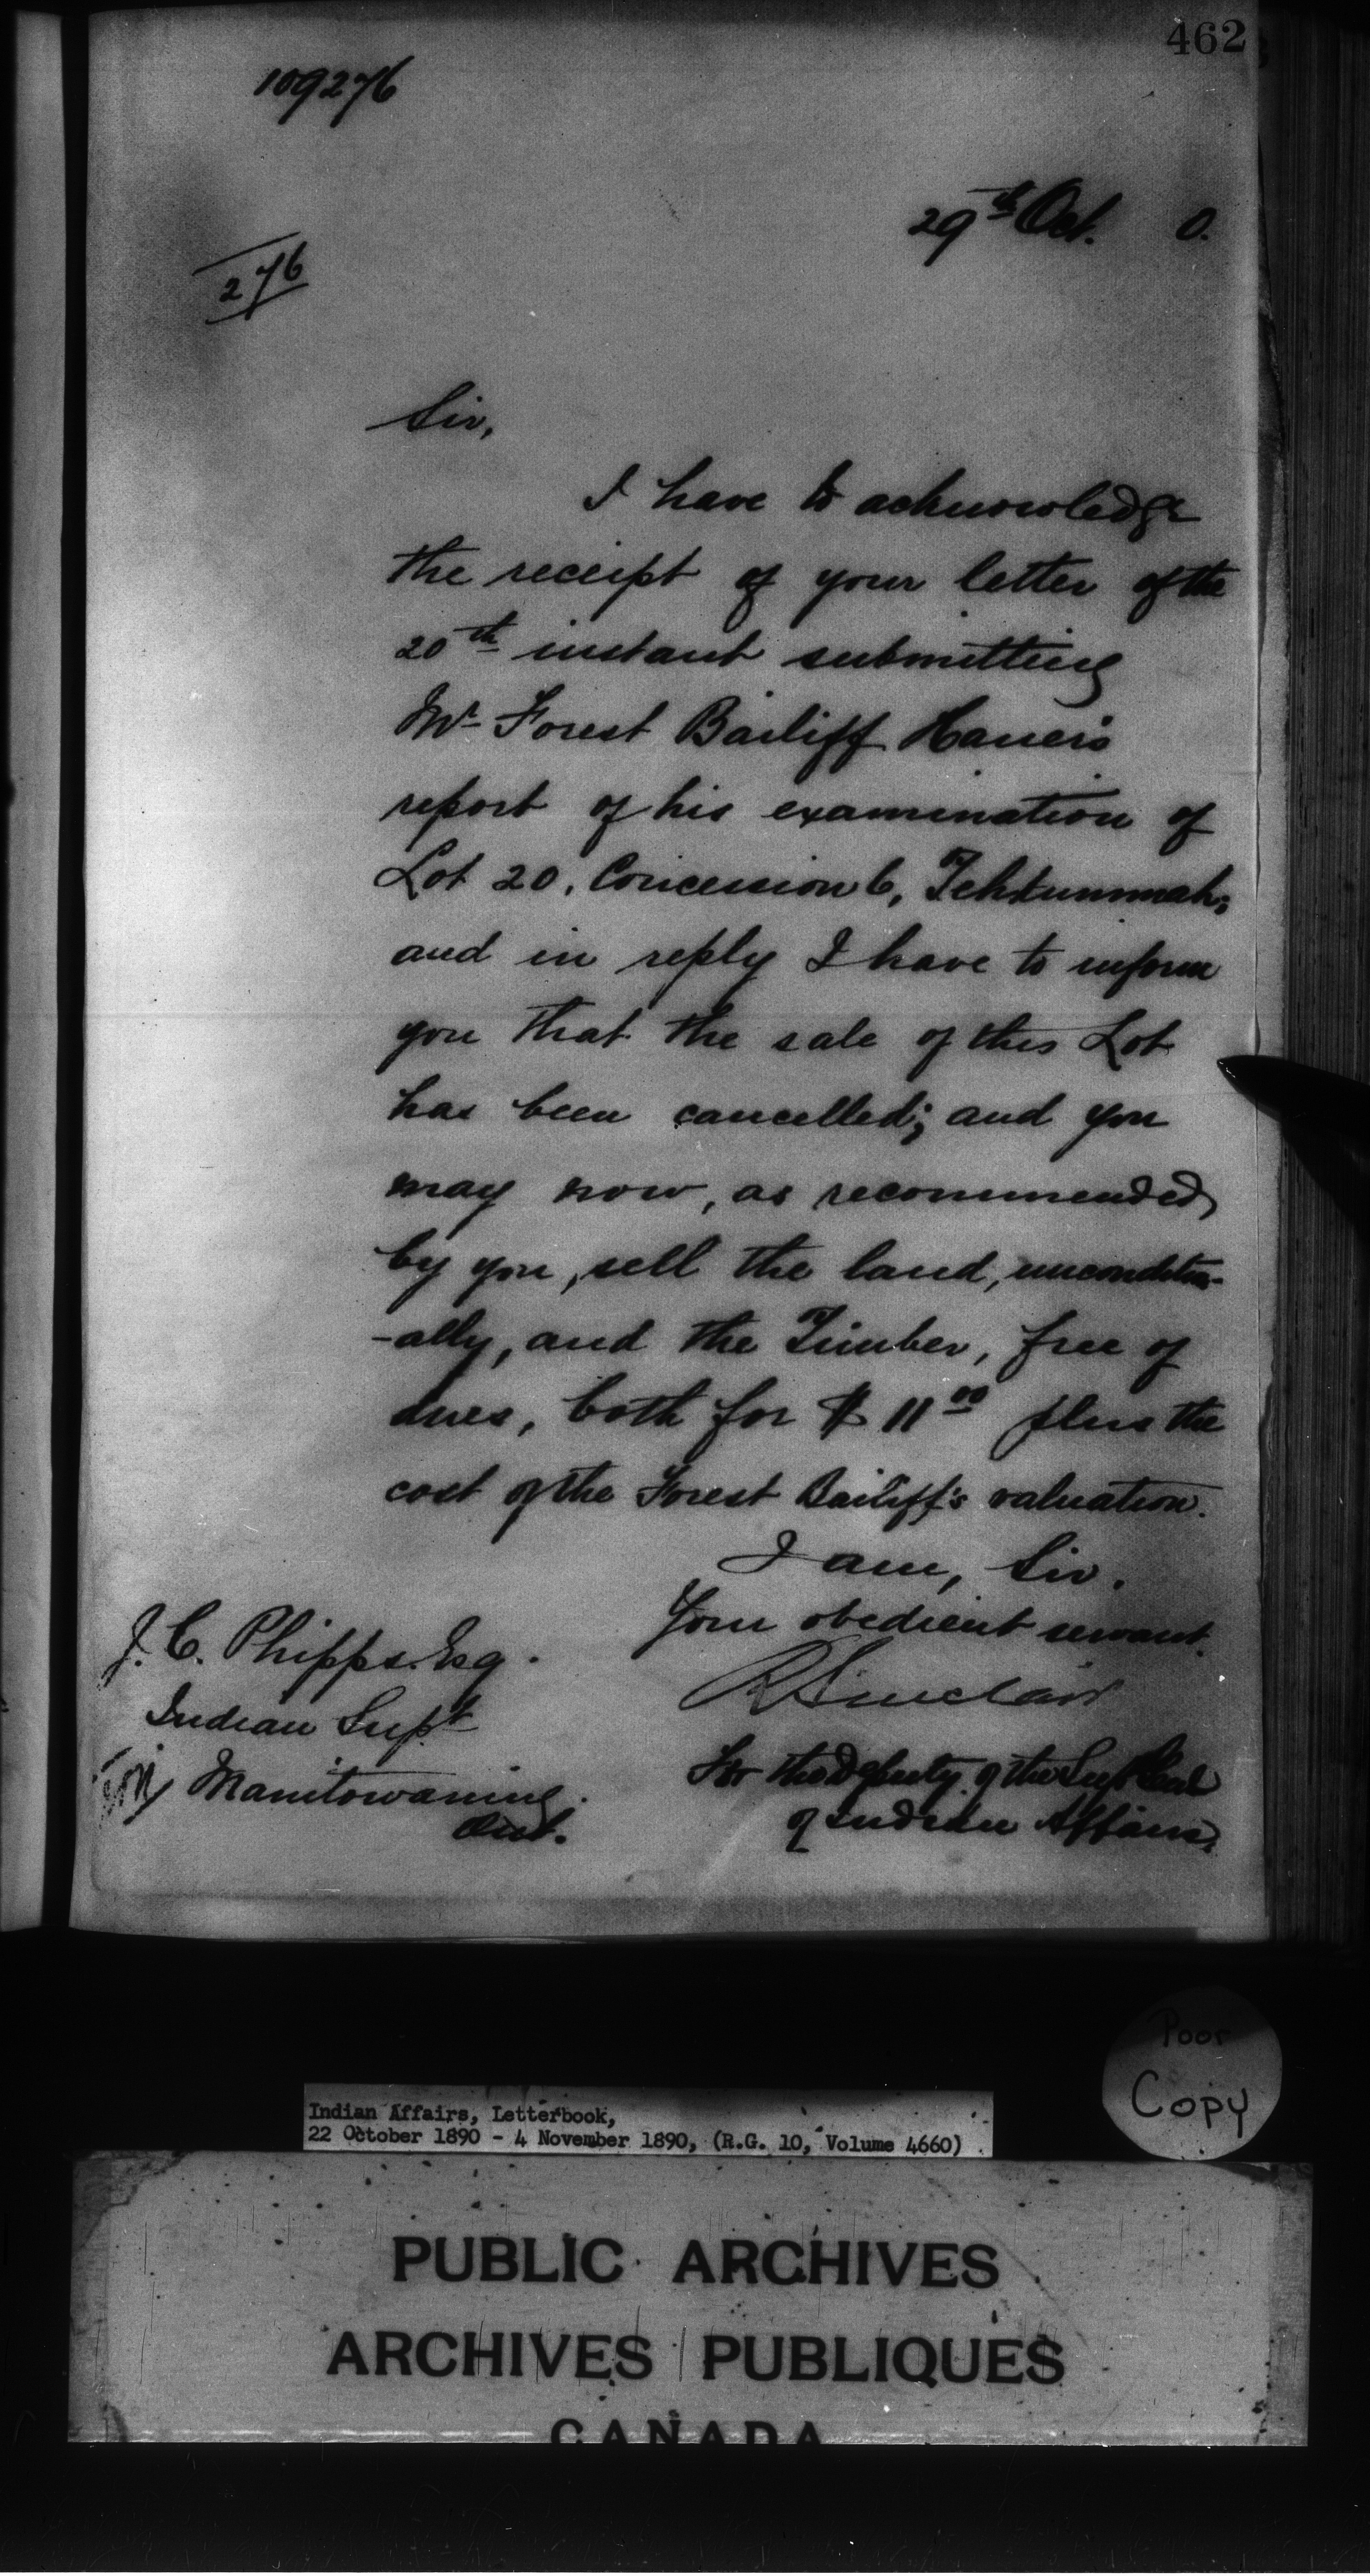 462
109276
29th Oct. 0.
276
Sir,
I have to acknowledge
the receipt of your letter of the
20th instant submitting
Mr Forest Bailiff Haner's
report of his examination of
Lot 20, Concession 6, Tehkummah;
and in reply I have to inform
you that the sale of this Lot
has been cancelled; and you
may now, as recommended
by you, sell the land, uncondition-
-ally, and the Timber, free of
dues, both for $ 11 00 plus the
cost of the Forest Bailiff's valuation.
I am, Sir,
Your obedient servant.
R Sinclair
For the Deputy of the Supt Genl
of Indian Affairs.
J. C. Phipps. Esq.
Indian Supt
Manitowaning.
Ont.
Poor
Copy
Indian Affairs, Letterbook,
22 October 1890 - 4 November 1890, (R.G. 10, Volume 4660)
PUBLIC ARCHIVES
ARCHIVES PUBLIQUES
CANADA